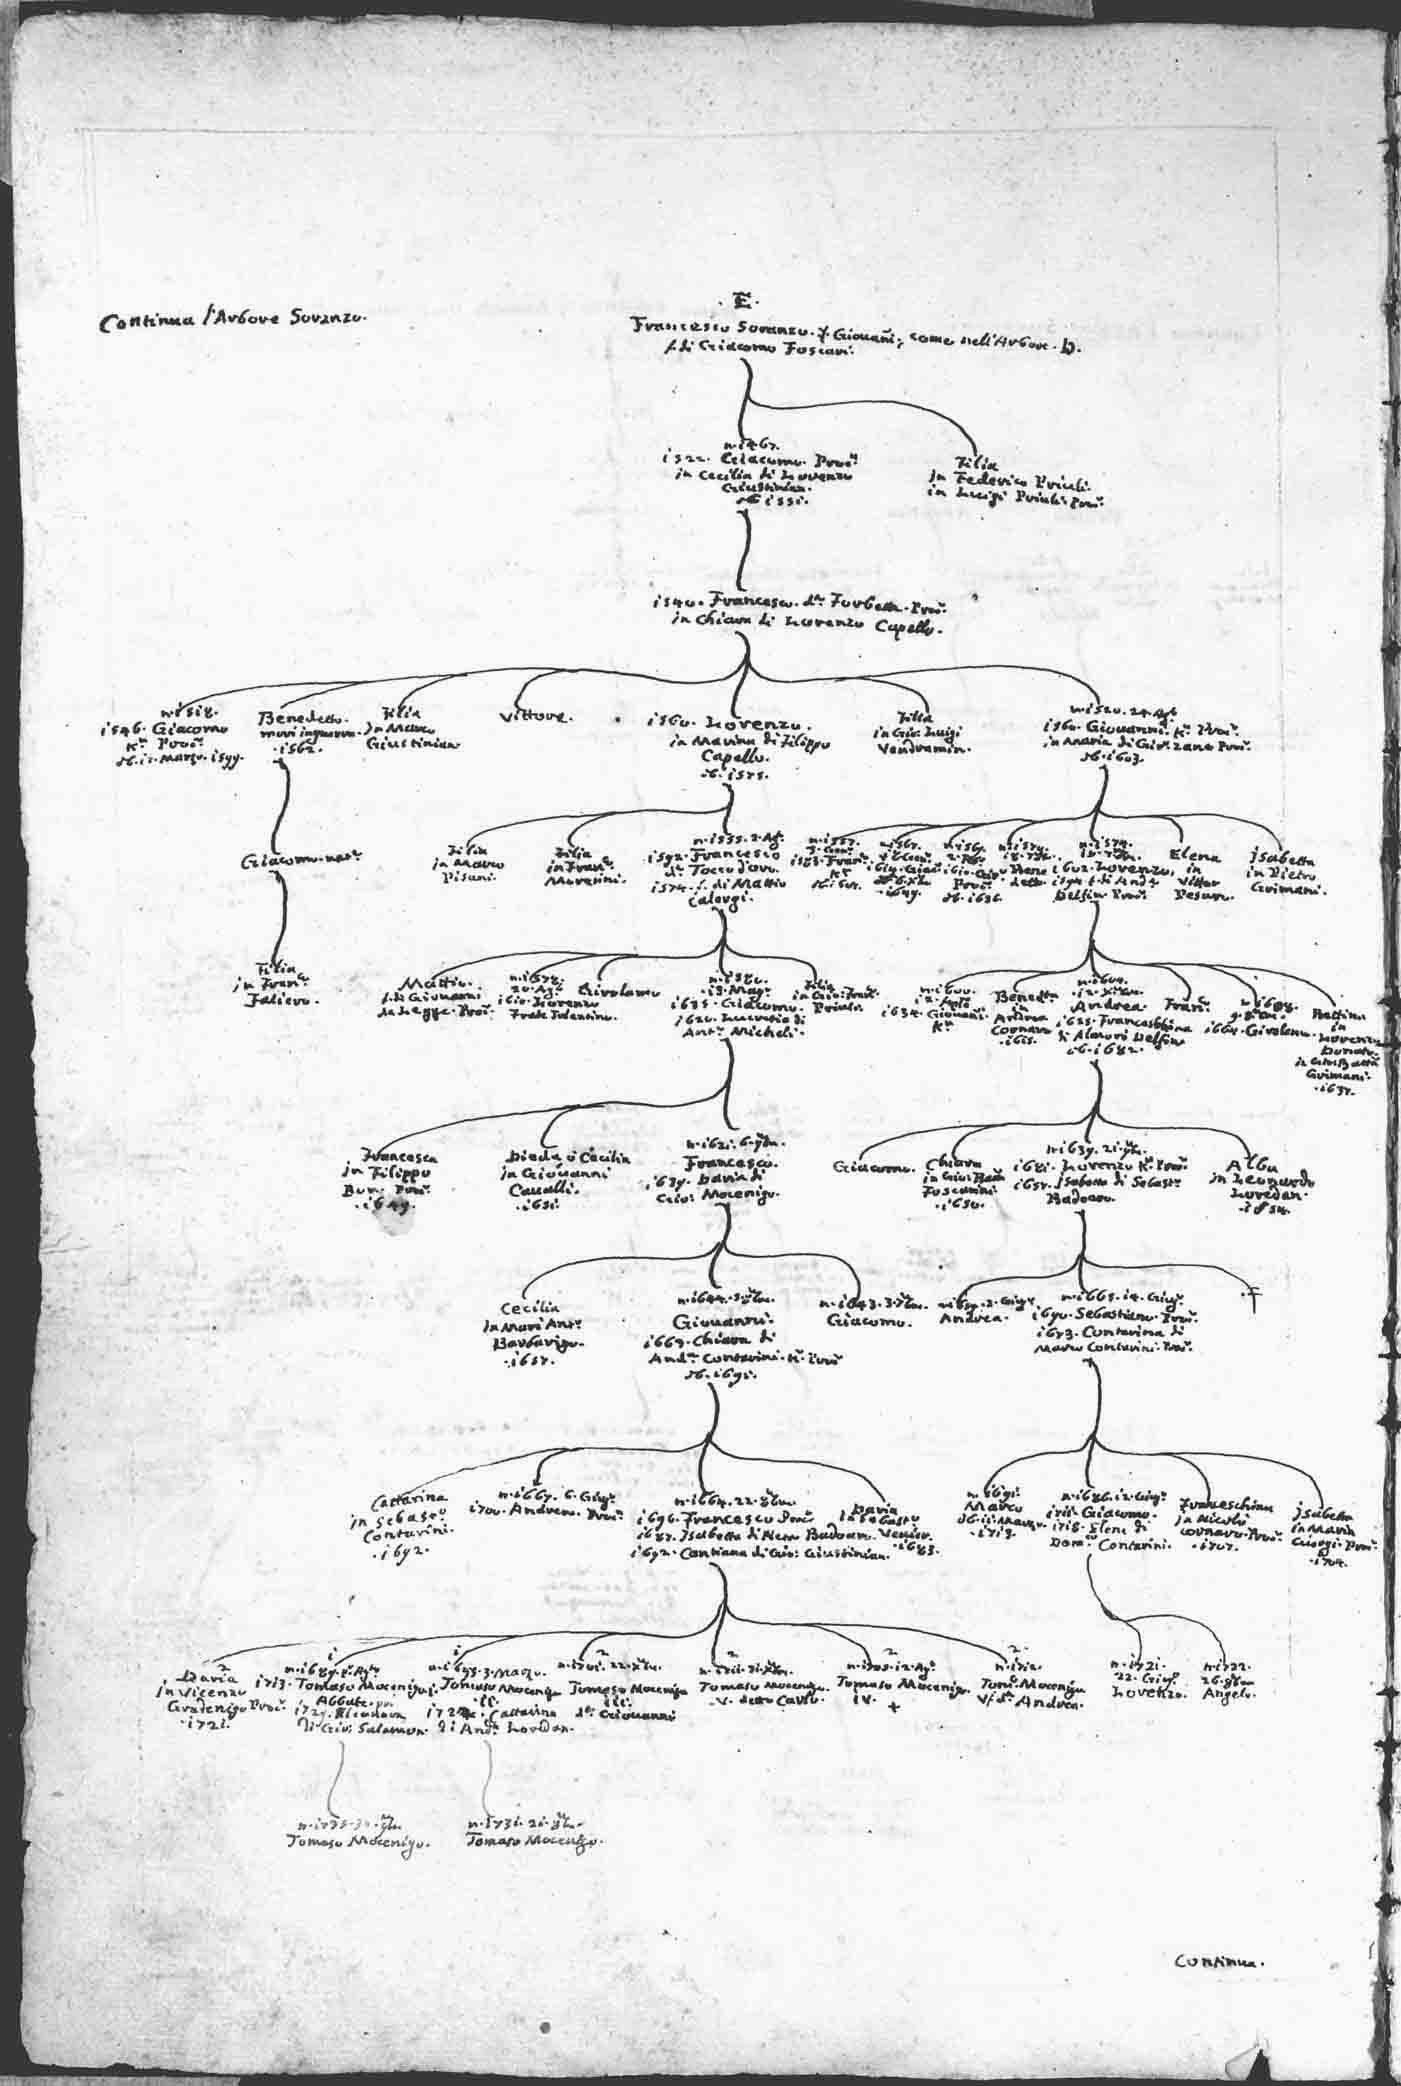 Continua l'Arbore Soranzo.
.E.
Francesco Soranzo. f. Giovani, come nell'Arbore. D.
f. di Giacomo Foscari.
n. i467.
i522. Giacomo. Procr.
in Cecilia di Lorenzo
Giustinian.
ob. i55i.
Filia
in Federico Priuli.
in Luigi Priuli. Procr.
i540. Francesco. dto. Proc.
in Chiara di Lorenzo Capello.
n. i5i8.
i546. Giacomo
Kr. Procr.
Marzo. i599.
Benedetto.
morì in guerra.
.i562.
Filia
in Marco
Giustinian
Vittore.
i560. Lorenzo.
in Marina di Filippo
Capello.
ob. i575.
Filia
in Gio. Luigi
Vendramin.
n. i520. 24. Agto
i560. Giovanni. Kr. Procr.
in Maria di Gio. Zane Procr.
ob. i603.
Giacomo. natl.
Filia
in Marco
Pisani.
Filia
in Franco.
Morosini.
n. i555. 2. Agto.
i592. Francesco
dto. Tocco d'oro.
i574. f. di Mattio
Calergi.
n. i557.
i583. Franco.
Kr.
n. i567.
n. i574.
n. i574.
i602. Lorenzo,
Delfin Procr.
Elena
in
Vittor
Pesaro.
Isabetta
in Pietro
Grimani.
Filia
in Franco.
Falier.
Mattio.
f. di Giovanni
da Legge. Procr.
n. i578.
20. Agto.
i6i0. Lorenzo
Frate Tolentino.
Girolamo
n. i580.
i3. Magr.
i635. Giacomo.
i620. Lucretia di
Anto. Micheli.
Filia
in Gio: Franco.
Priuli.
n. i600.
i634. Giovani.
Kr.
Benedta
in
Andrea
Cornaro
.i6i5.
n. i604.
Andrea
i625. Franceschina
di Almorò Delfin
ob. i682.
Franco.
i664. Girolamo.
Bettina
in
Lorenzo
Donato.
in Gio: Batta
Grimani.
.i637.
Francesca
in Filippo
Bon. Procr.
.i649.
Dieda ò Cecilia
in Giovanni
Cavalli.
.i65i.
n. i62i. 6. 7bre.
Francesco.
i639. Daria di
Gio: Mocenigo.
Giacomo.
Chiara
in Gio: Batta
Foscarini
.i650.
n. i639. 2i. 7bre.
i68i. Lorenzo Kr. Procr.
i657. Isabetta di Sebasto.
Badoaro.
Alba
in Leonardo
Loredan.
.i654.
Cecilia
in Marc' Anto.
Barbarigo.
.i657.
n. i644. 5. 8bre.
Giovanni.
i663. Chiara di
Anda. Contarini. Kr. Procr
ob. i69i.
n. i643. 3. 7bre.
Giacomo.
Andrea.
n. i665. i4. Giugo.
i690. Sebastiano. Procr.
i673. Contarina di
Marco Contarini. Procr.
.F
Cattarina
in Sebasto
Contarini.
.i692.
n. i667. 6. Giugo.
i700. Andrea. Procr.
n. i664. 22. 8bre.
i696. Francesco Procr.
i687. Isabetta di Nero Badoaro.
i692. Contiana di Gio: Giustinian.
Daria
in Sebasto
Venier.
.i683.
n. i69i.
Marco
ob. ii. Marzo.
.i7i3.
n. i686. i2. Giugo.
i7ii. Giacomo.
i7i8. Elena di
Domo. Contarini.
Franceschina
in Nicolò
Cornaro. Procr.
.i707.
Isabetta
in Marin
Giorgi. Procr.
.i704.
2
Daria
in Vicenzo
Gradenigo Procr.
.i72i.
i
n. i689. Agto
i7i3. Tomaso Mocenigo i.
Abbate. poi
i729. Eleonora
di Gio: Salamon.
i
n. i695. 3. Marzo.
Tomaso Mocenigo
ii.
Cattarina
di Anda. Loredan.
2
n. i70i. 22. Xbre.
Tomaso Mocenigo
iii.
dto. Giovanni
2
n. i7ii. 3i. Xbre.
Tomaso Mocenigo
.V. detto Carlo.
2
n. i705. i2. Agto.
Tomaso Mocenigo.
iV.
+
2
n. i7i2.
Tomo. Mocenigo
Vi. dto. Andrea.
n. i72i.
22. Giugo.
Lorenzo.
n. i722.
26. 8bre
Angelo.
Tomaso Mocenigo.
n. i73i. 2i. 8bre.
Tomaso Mocenigo.
Continua.